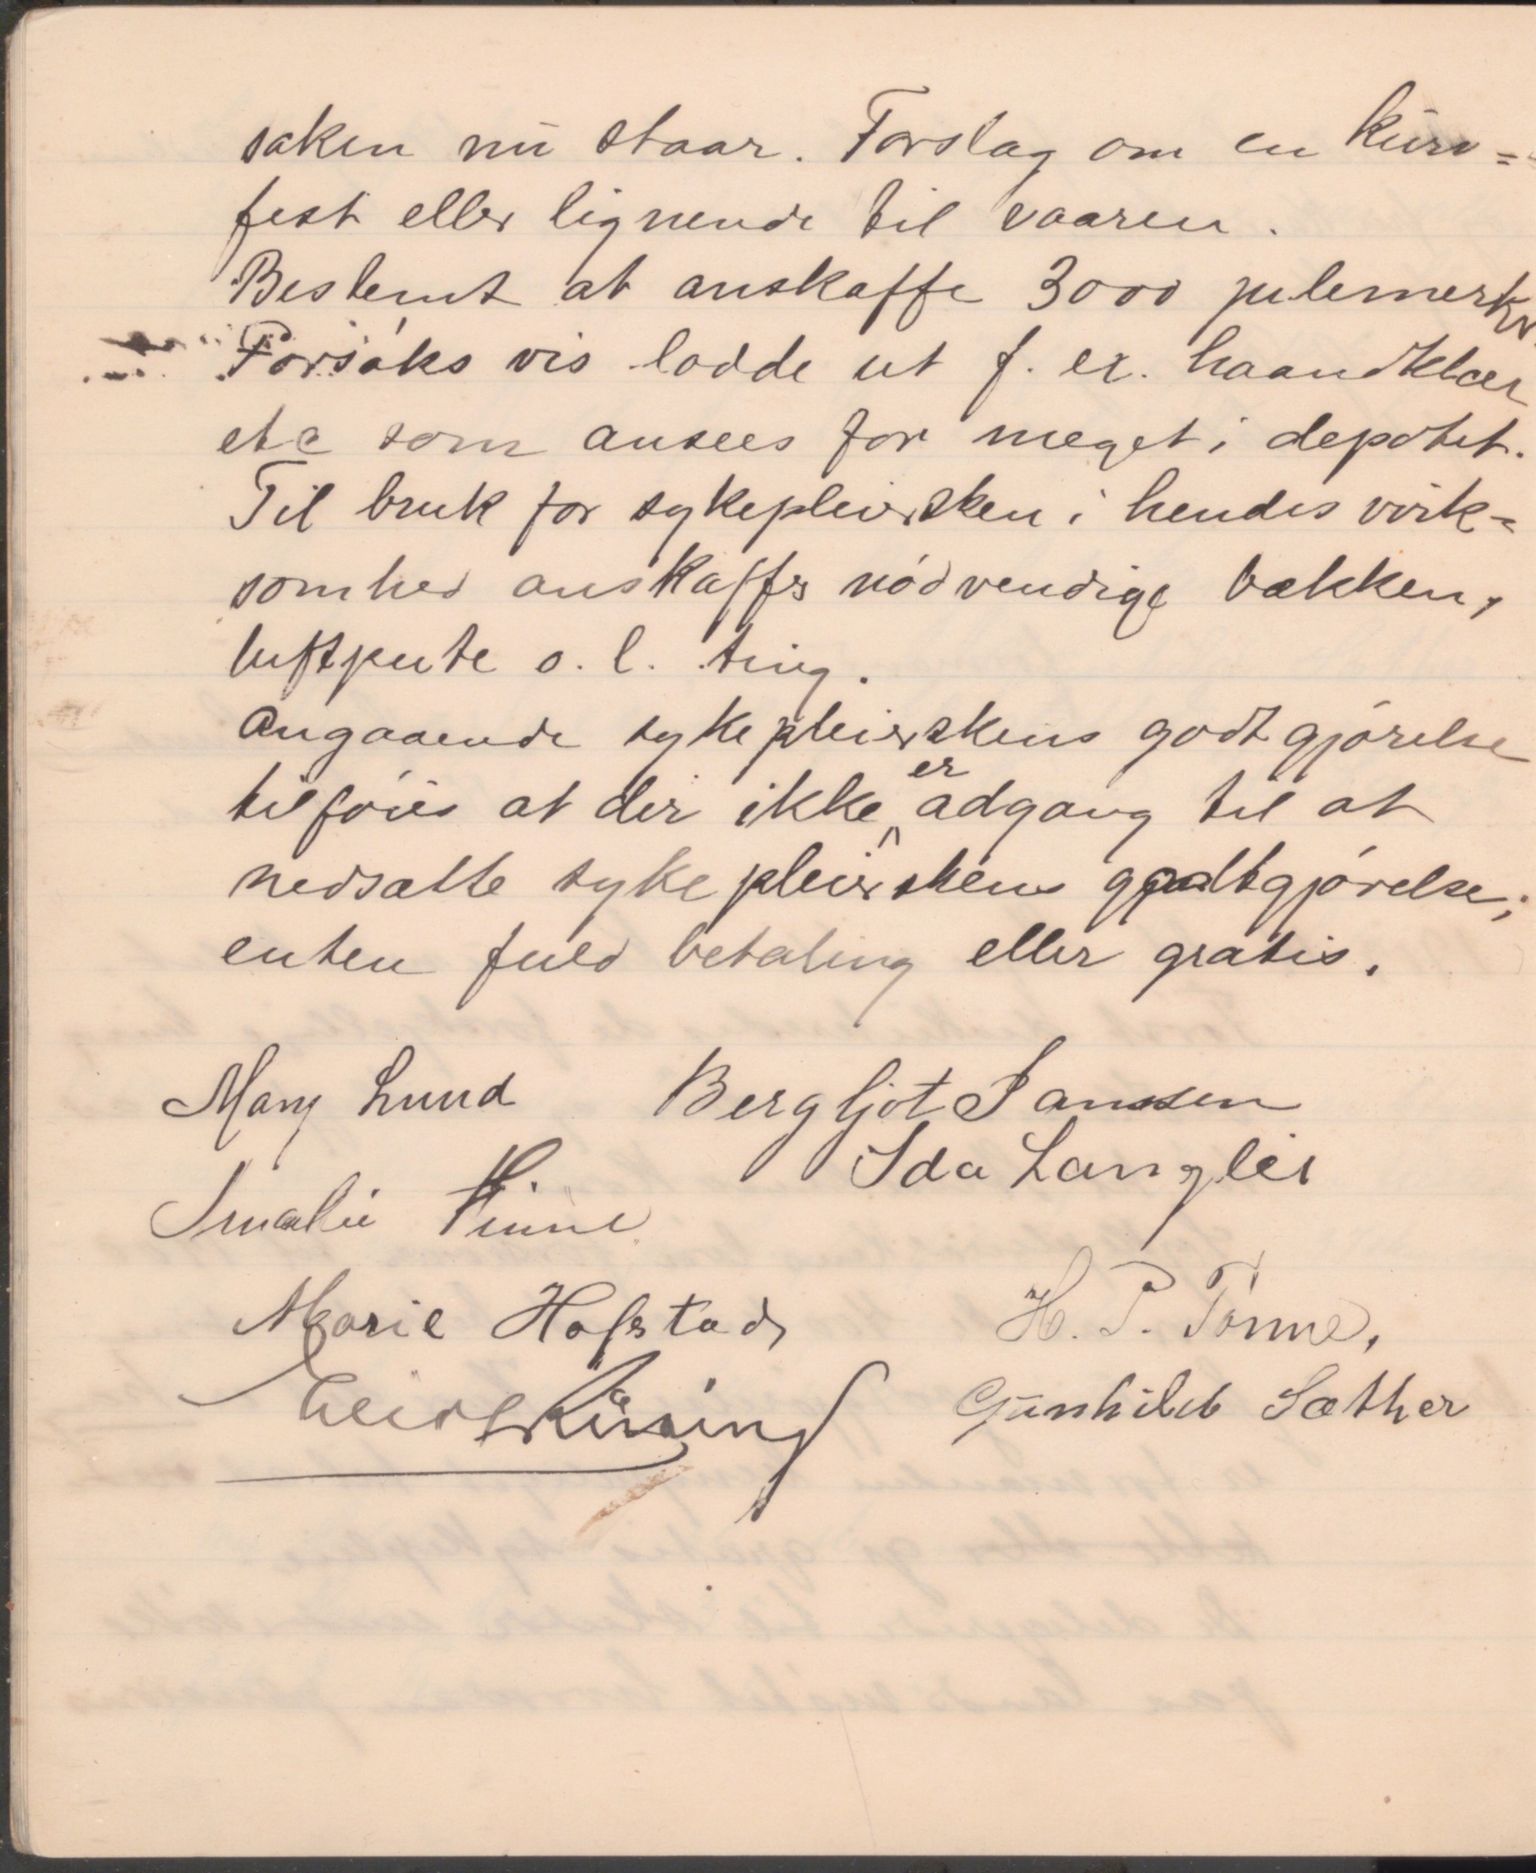 saken nu staar. Forslag om en kurv=
fest eller lignende til vaaren.
Bestemt at anskaffe 3000 julemerker
Forsøks vis lodde ut f. ex. haandklær
etc som ansees for meget i depotet.
Til bruk for sykepleiersken i hendes virk=
somhed anskaffes nødvendige bækken,
luftpute o. l. ting.
Angaaende sykepleierskens godtgjørelse
tilføies at der ikke er adgang til at
nedsætte sykepleierskens godtgjørelse;
enten fuld betaling eller gratis.
Mary Lund Bergljot Janssen
Ida Langlei
Amalie Finne
Marie Hofstad H. P. Tønne,
Gunhild Sæther